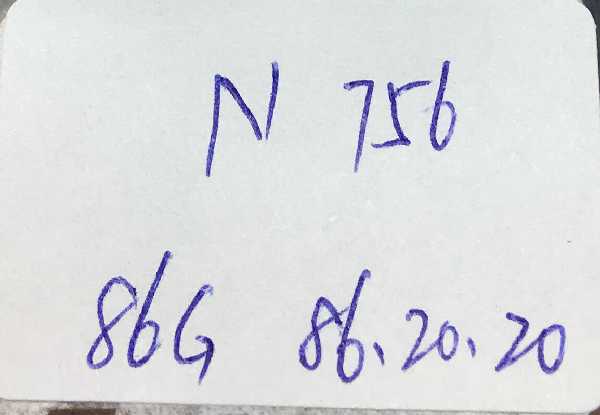 N 756
86G 86、20、20